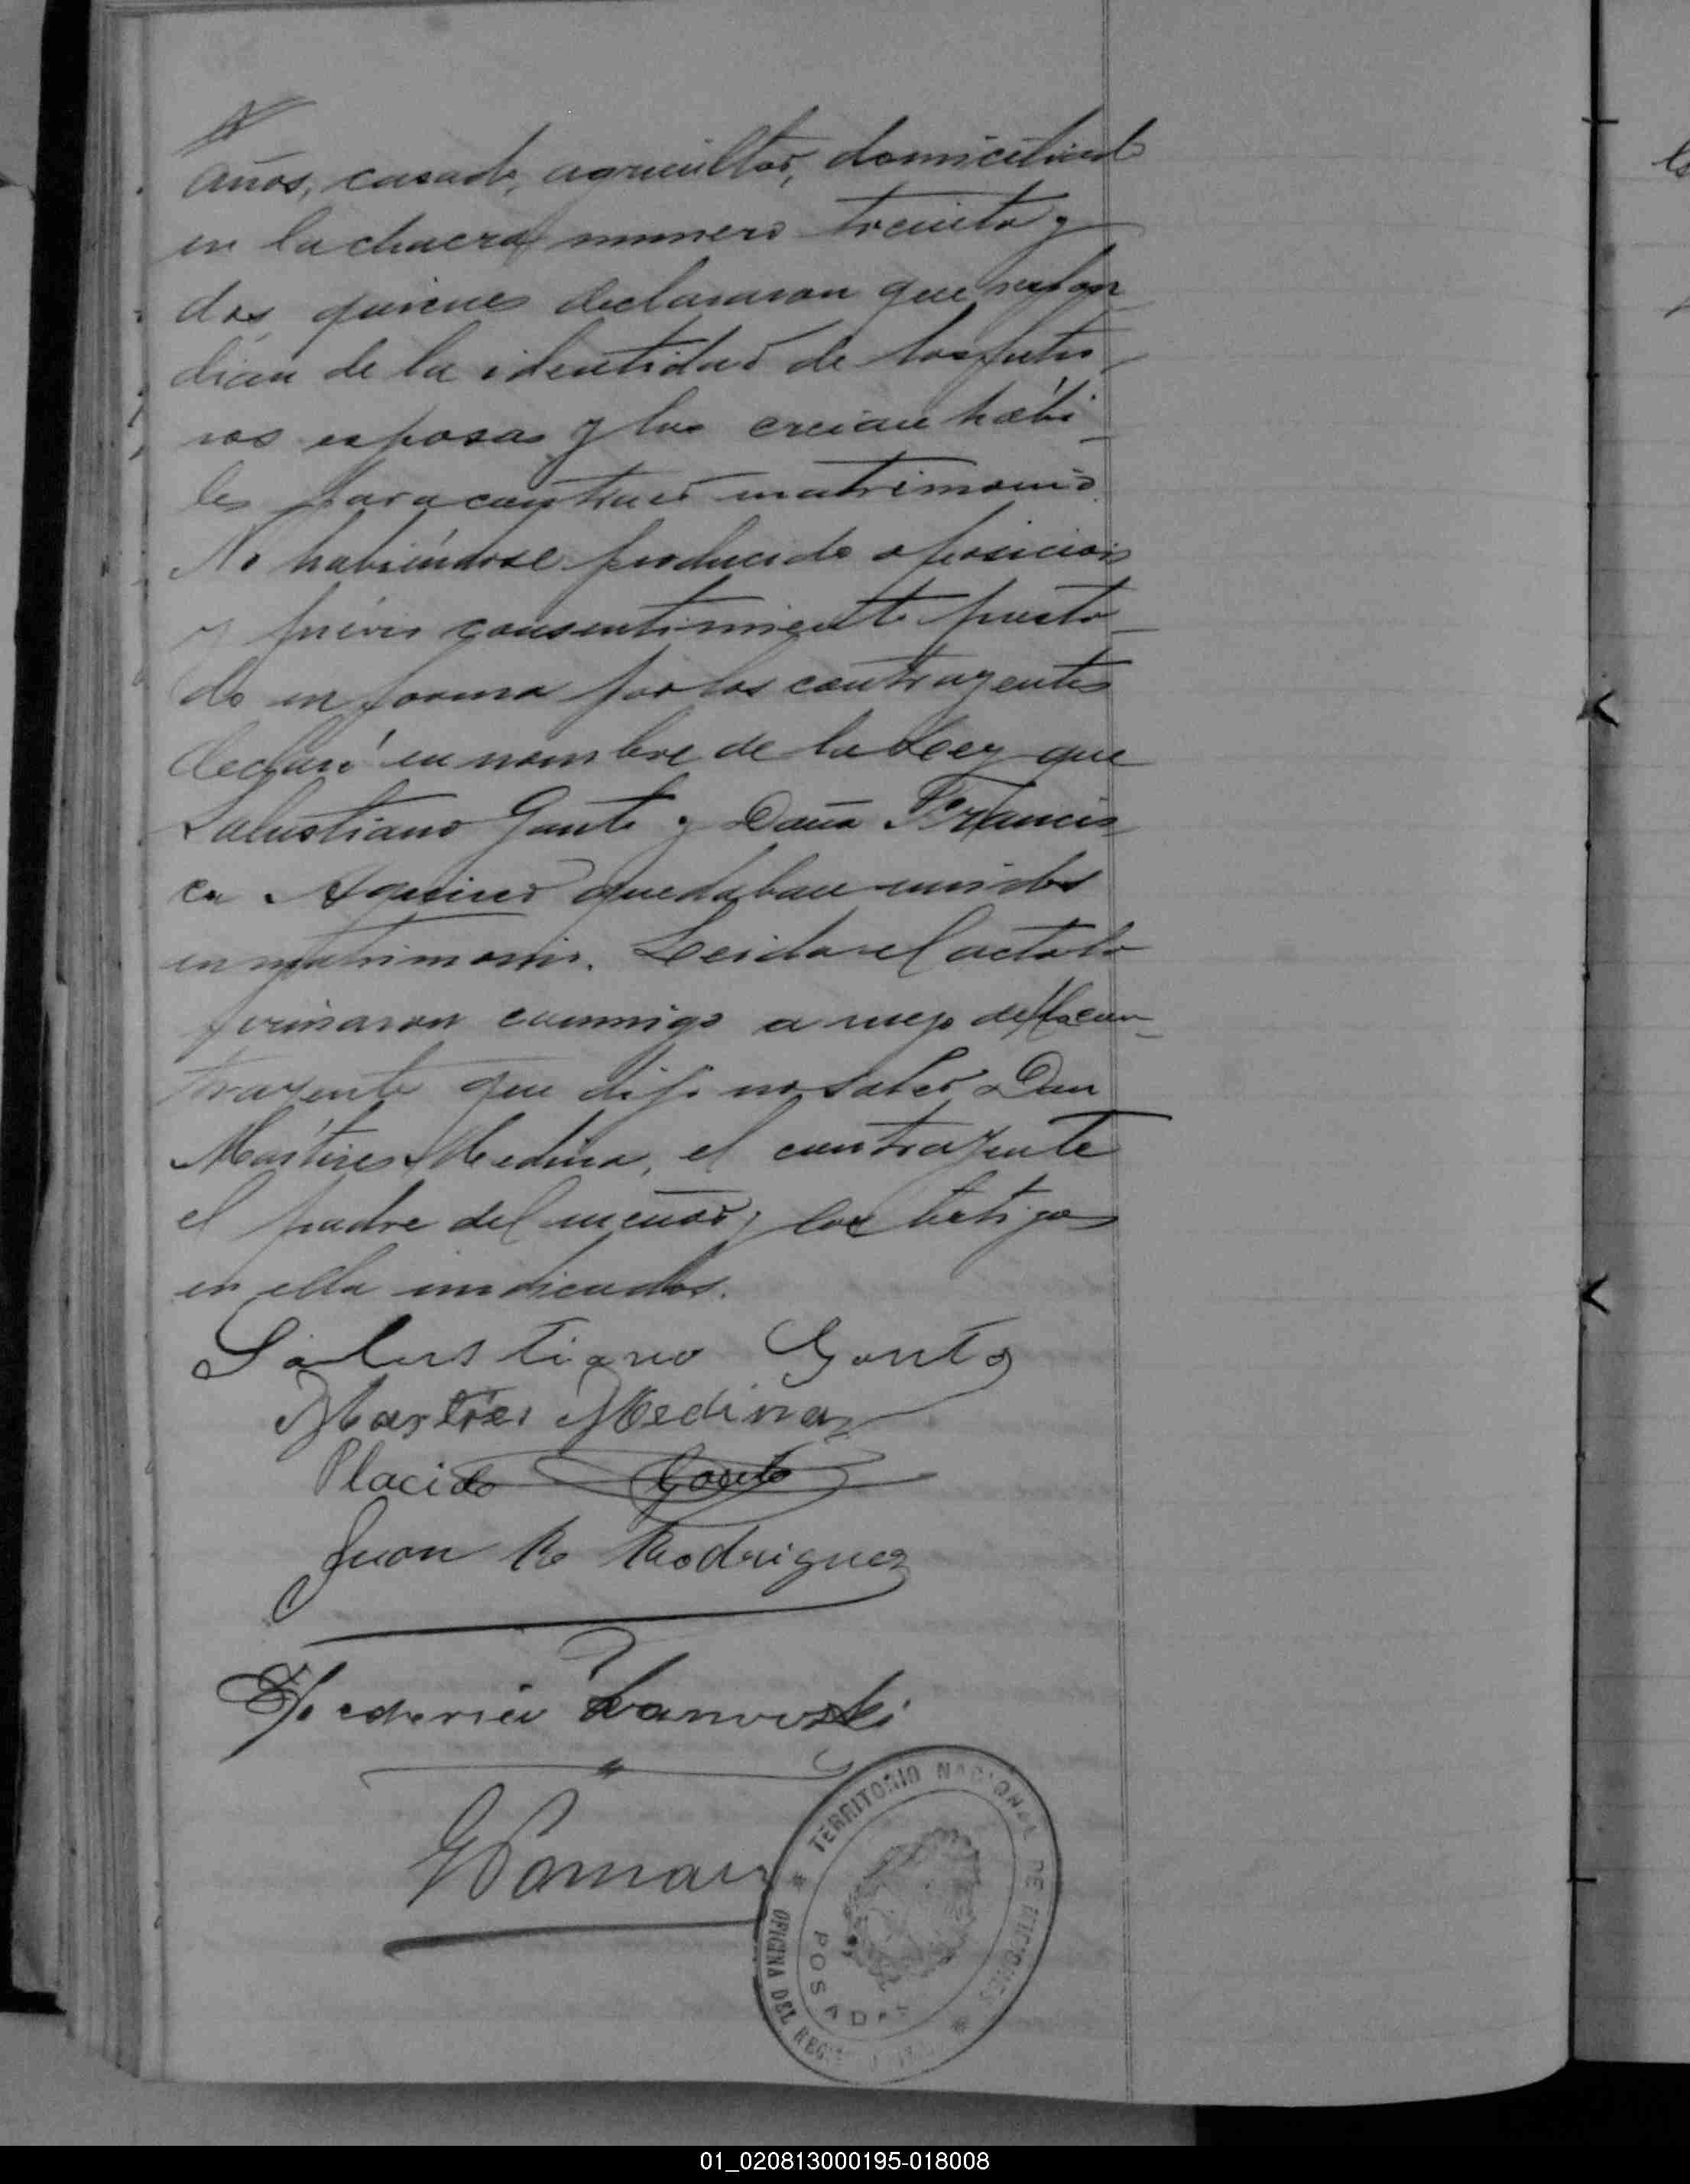 años, casado, agricultor, domiciliado
en la chacra numero treinta y
dos, quienes declararon que respon
dian de la identidad de los futu
ros esposos y los creian hábi
les para contraer matrimonio.
No habiéndose producido oposicion
y prévio consentimiento presta
do en forma por los contrayentes
declaré en nombre de la Ley que
Salustiano Gauto y Doña Francis
ca Aquino quedaban unidos
en matrimonio. Leida el acta la
firmaron conmigo a ruego de la con
trayente que dijo no saber Don
Mártires Medina, el contrayente
el padre del menor y los testigos
en ella indicados.
Salustiano Gauto
Martires Medina
Placido Gauto
Juan R Rodriguez
Federico
TERRITORIO NACIONAL DE MISIONES
OFICINA DEL
POSADAS
01_020813000195-018008